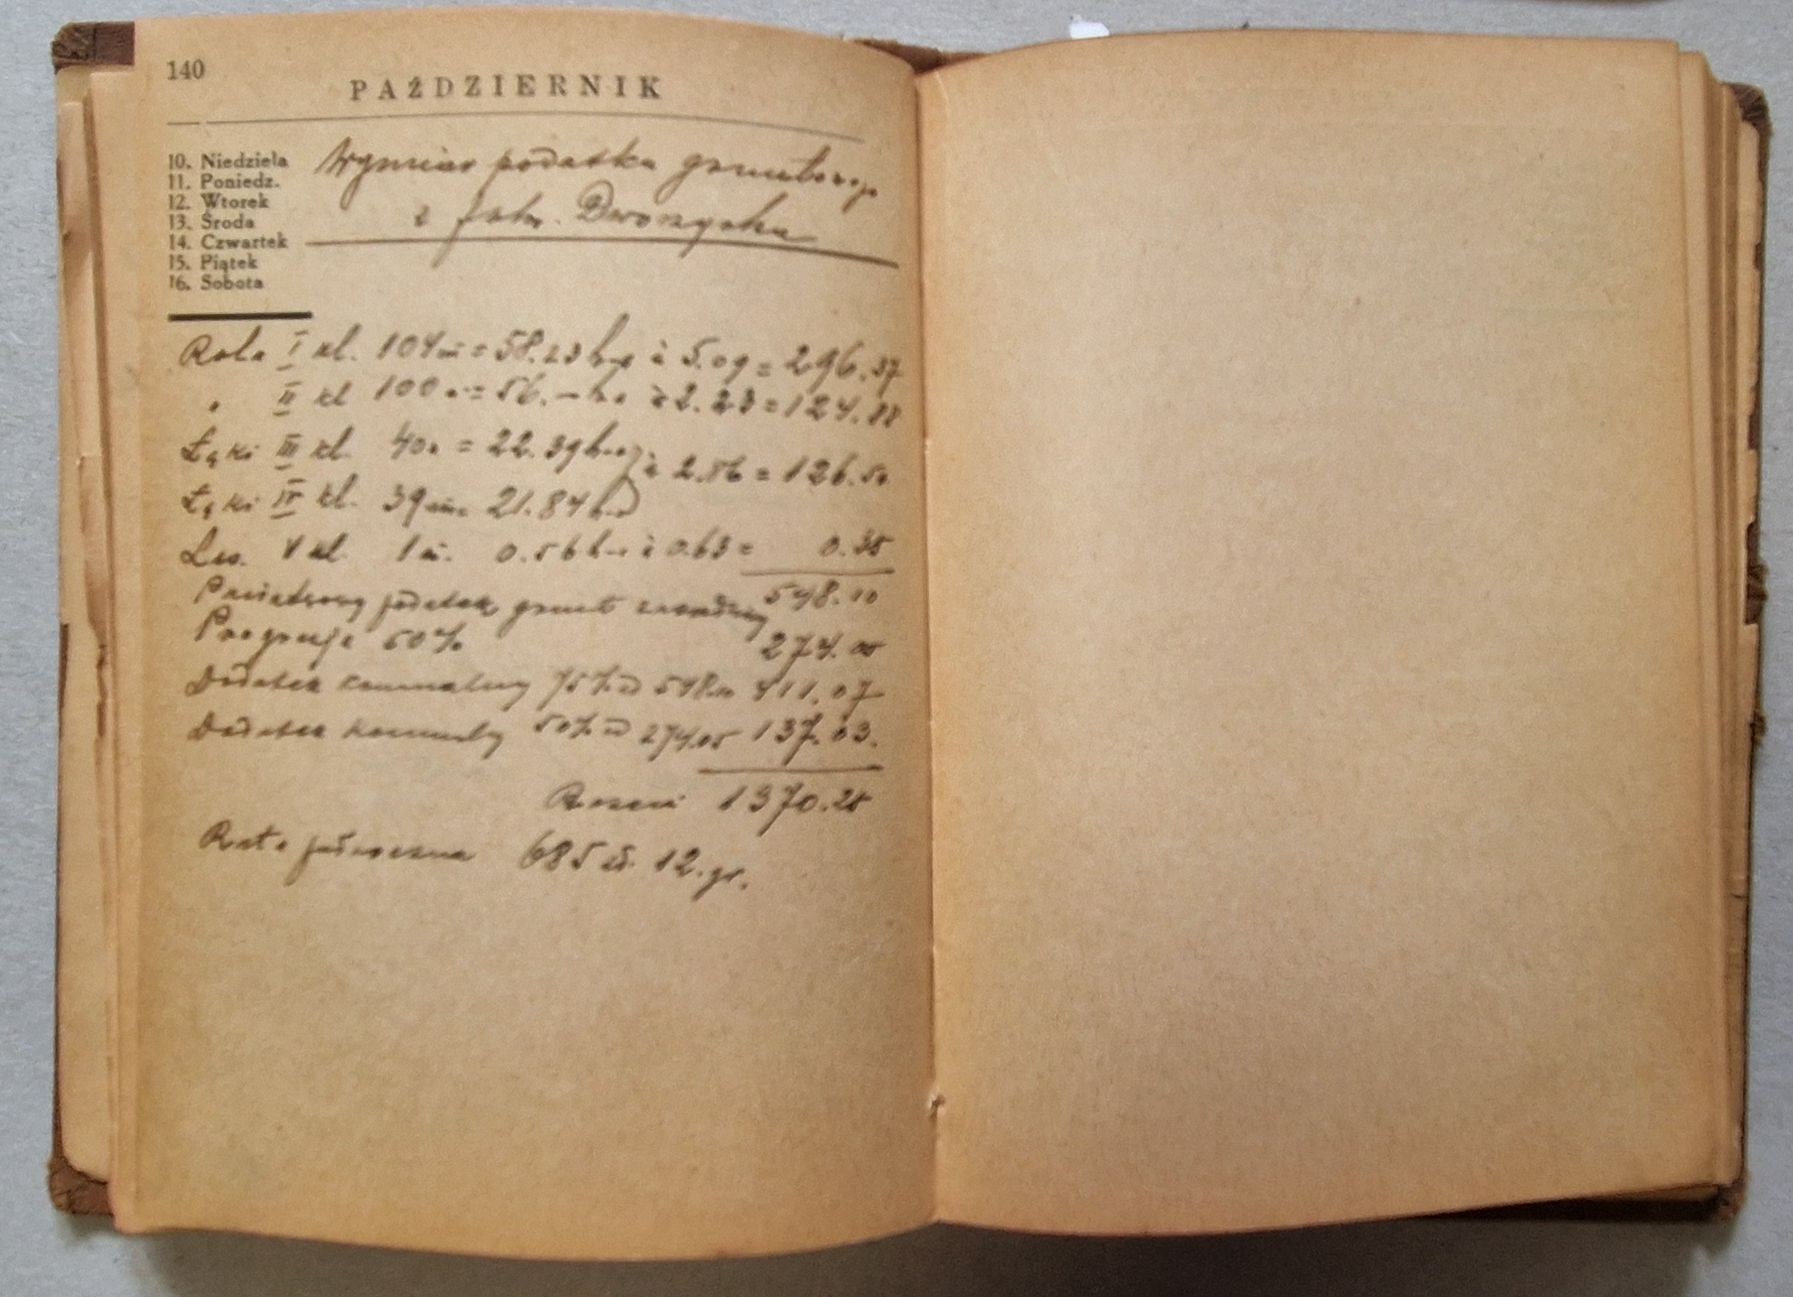 140
PAŹDZIERNIK
10. Niedziela
11. Poniedz.
12. Wtorek
13. Środa
14. Czwartek
15. Piątek
16. Sobota
Wymiar podatku gruntowego
z folw. Dworzyska
Rola I kl. 104 m = 58.23 ha à 5.09 = 296.37
" II kl 100 m = 56.— ha à 2.23 = 124.88
Łąki III kl. 40 m = 22.39 ha
à 2.86 = 126.50
Łąki IV kl. 39 m = 21.84 ha
Las. V kl. 1 m. 0.56 ha à 0.63 = 0.35
Państwowy podatek grunt zasadniczy 548.10
Progresja 50% 274.05
Dodatek komunalny 75% od 548.10 411.07
Dodatek komunalny 50% od 274.05 137.03.
Razem 1370.25
Rata półroczna 685 zł. 12. gr.